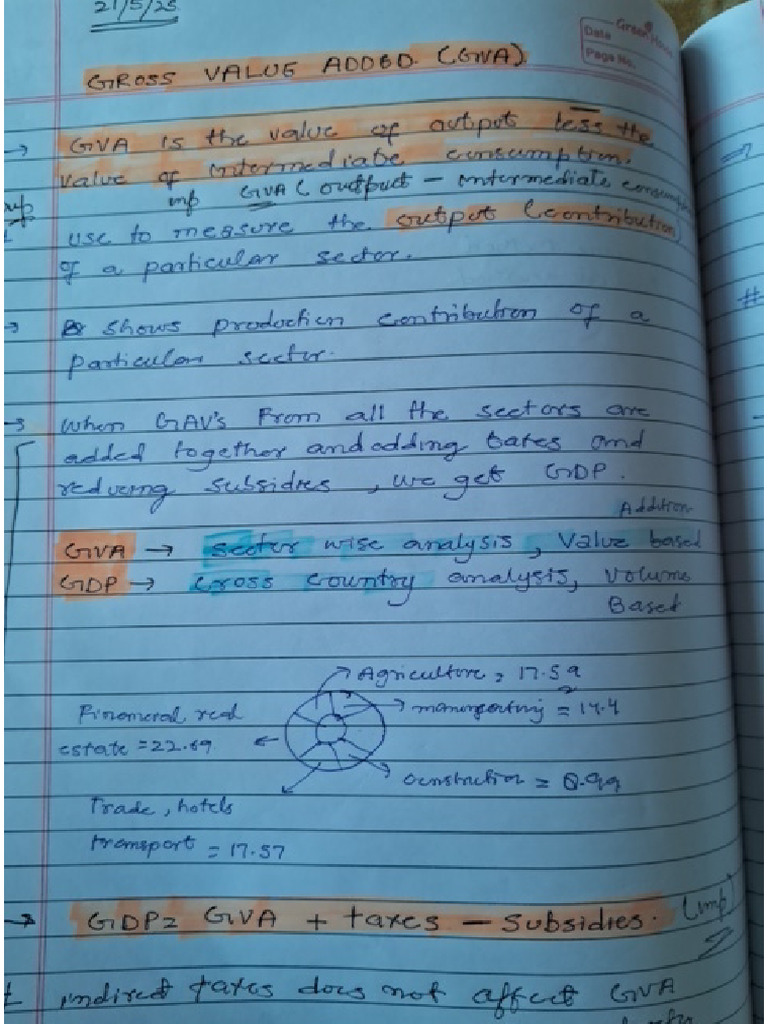 21/5/25
Green House
Date
Page No.
GROSS VALUE ADDED. (GVA).
→ GVA is the value of output less the
value of intermediate consumption.
imp GVA (output - intermediate
use to measure the output (contribution)
of a particular sector.
→ shows production contribution of a
particular sector.
→ When GAV's From all the sectors are
added together and adding taxes and
reducing subsidies, we get GDP.
Addition
GVA → sector wise analysis, Value based
GDP → cross country analysis, Volume
Based
Agriculture, 17.59
Financial real
= 14.4
estate = 22.69
construction =
Trade, hotels
transport = 17.57
→ GDP = GVA + taxes - subsidies. (imp)
indirect taxes does not affect GVA